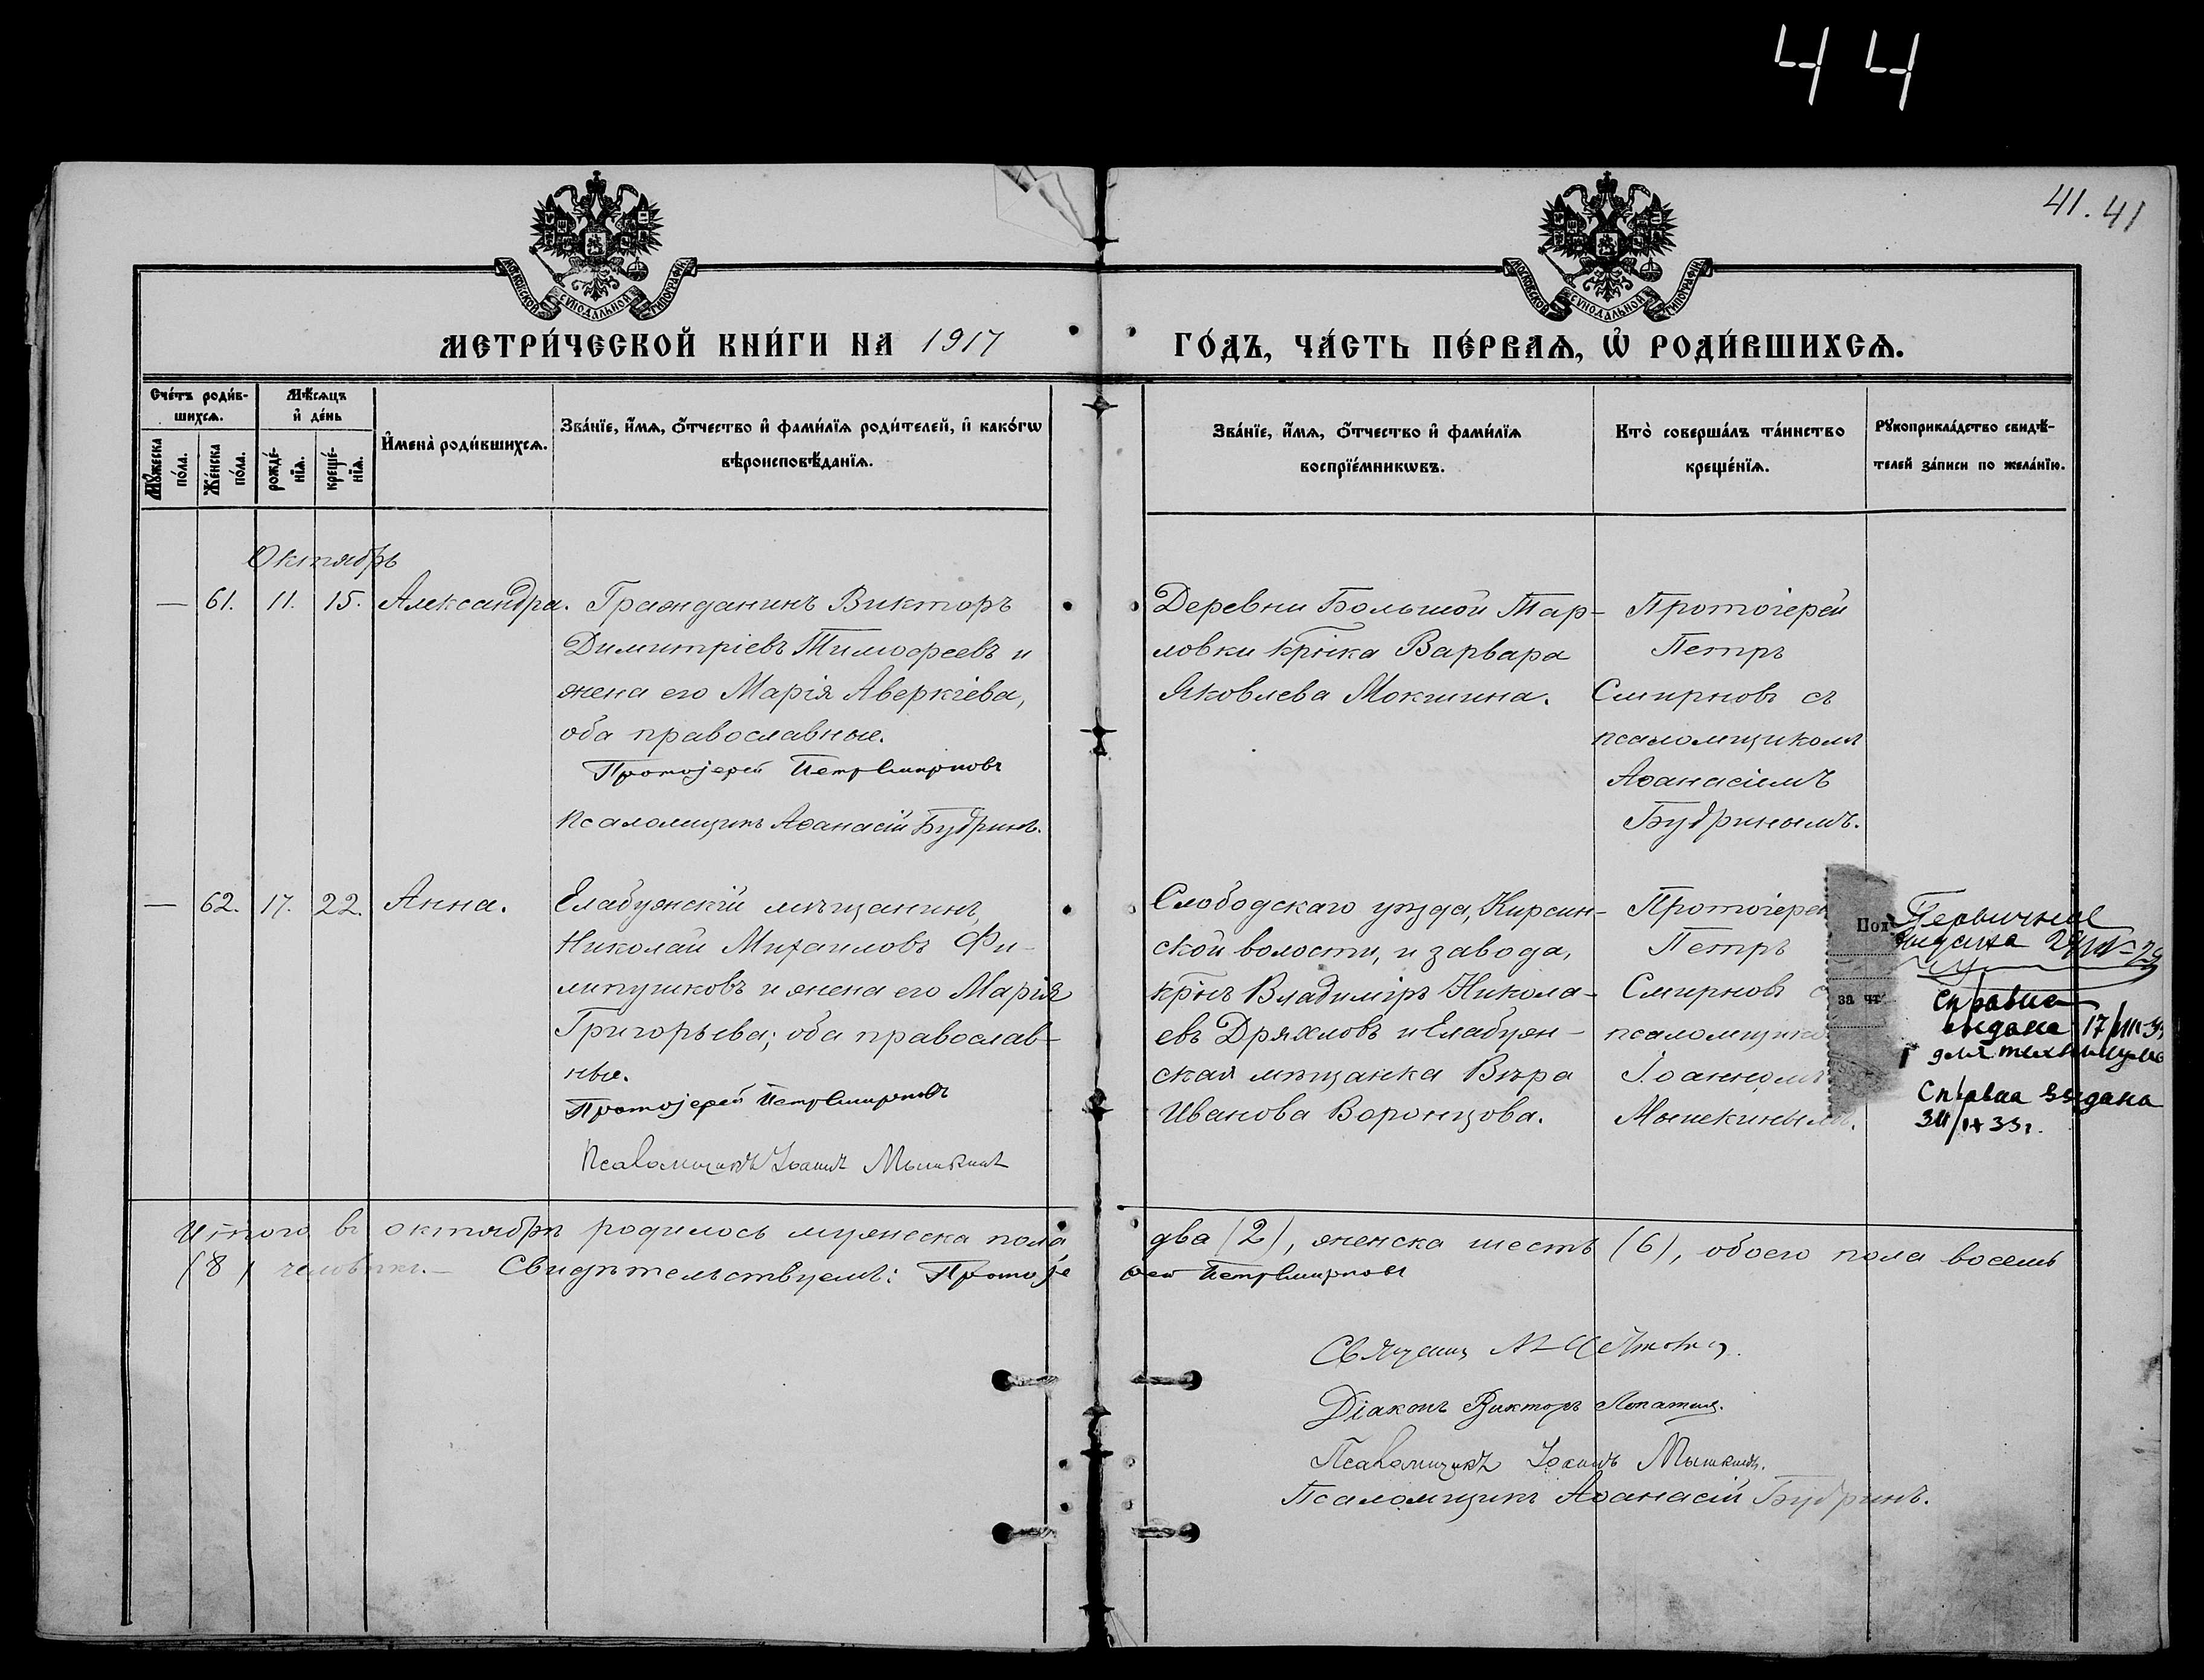 44
41. 41
МОСКОВСКОЙ СѴНОДАЛЬНОЙ ТИПОГРАФІИ
МОСКОВСКОЙ СѴНОДАЛЬНОЙ ТИПОГРАФІИ
МЕТРИ́ЧЕСКОЙ КНИ́ГИ НА 1917
ГО́ДЪ, ЧА́СТЬ ПЕ́РВАѦ, Ѡ҆ РОДИ́ВШИХСѦ.
Сче́тъ роди́в-
шихсѧ.
Мꙋ́жеска
по́ла.
Же́нска
по́ла.
Мѣ́сѧцъ
и҆ де́нь
рожде́-
нїѧ.
креще́-
нїѧ.
И҆мена̀ роди́вшихсѧ.
Зва́нїе, и҆́мѧ, ѻ҆́тчество и҆ фами́лїѧ роди́телей, и҆ како́гѡ
вѣроисповѣ́данїѧ.
Зва́нїе, и҆́мѧ, ѻ҆́тчество и҆ фами́лїѧ
воспрїе́мникѡвъ.
Кто̀ соверша́лъ та́инство
креще́нїѧ.
Рꙋкоприкла́дство свидѣ́-
телей за́писи по жела́нїю.
Октябрь
— 61. 11. 15. Александра.
Гражданинъ Викторъ
Димитріевъ Тимоѳеевъ и
жена его Марія Аверкіева,
оба православные.
Протојерей Петръ Смирновъ
Псаломщикъ Аѳанасій Будринъ.
Деревни Большой Тар-
ловки кр҃нка Варвара
Яковлева Мокшина.
Протоіерей
Петръ
Смирновъ съ
псаломщикомъ
Аѳанасіемъ
Будринымъ.
— 62. 17. 22. Анна.
Елабужскій мѣщанинъ,
Николай Михаиловъ Фи-
липушковъ и жена его Марія
Григорьева; оба православ-
ные.
Протојерей Петръ Смирновъ
Псаломщикъ Іоаннъ Мышкинъ
Слободскаго уѣзда, Кирсин-
ской волости, и завода,
кр҃нъ Владиміръ Никола-
евъ Дряхловъ и Елабуж-
ская мѣщанка Вѣра
Иванова Воронцова.
Протоіерей
Петръ
Смирновъ с
псаломщико
Іоанномъ
Мышкинымъ.
Пох
за чт
Первичная
выдана
Справка
выдана 17/VIII-3
для техникума
Справка выдана
3II/IX 33г.
Итого въ октябрѣ родилось мужеска пола,
два (2), женска шесть (6), обоего пола восемь
(8) человѣкъ.— Свидѣтельствуемъ: Протоје
рей Петръ Смирновъ
Священ
Діаконъ Викторъ Лопатин.
Псаломщикъ Іоаннъ Мышкинъ.
Псаломщикъ Аѳанасій Будринъ.